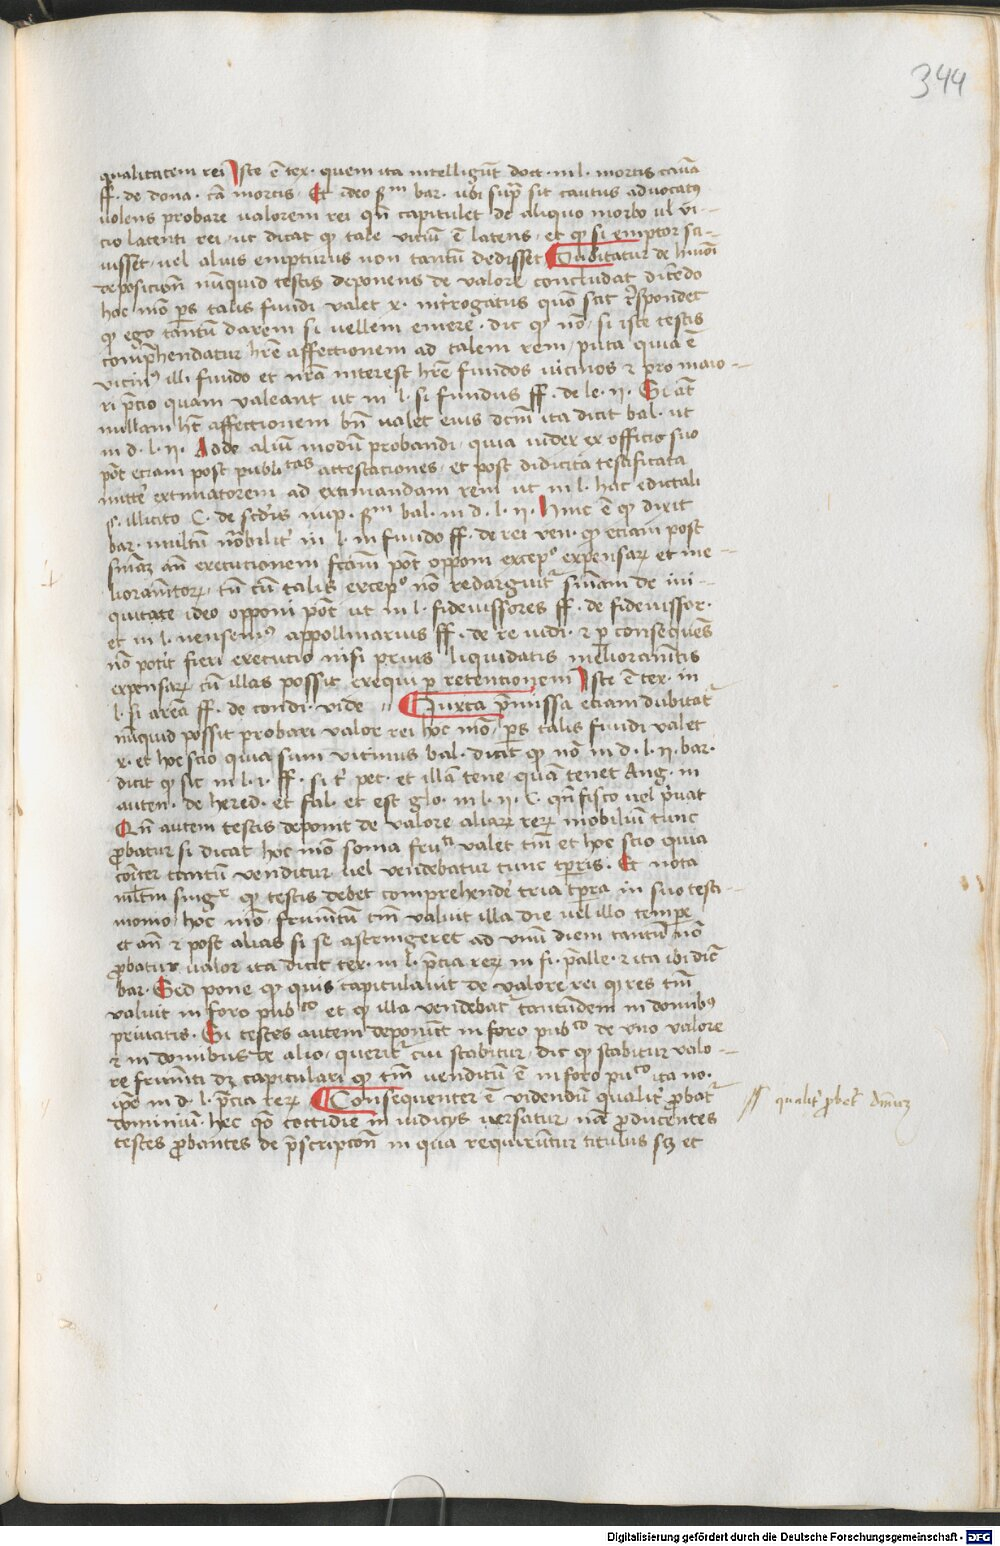 344
qualitatem rei Iste ē tex. quem ita intelligūt doct. in l. mortis causa
ff. de dona. cā mortis. Et ideo sm bar. ubi supra sit cautus advocatus
volens probare valorem rei qn capitulet de aliquo morbo vl vi-
cio latenti rei, ut dicat qp tale viciū ē latens, et qp si emptor sci-
visset, vel alius empturus non tantū dedisset Dubitatur de huiusmodi
deposicion nunquid testis deponens de valore concludat dicendo
hoc mo ps talis fundi valet x. introgatus quo scit respondet
qp ego tantum darem si vellem emere. dic qp no, si iste testis
comprehendatur hre affectionem ad talem rem, puta quia ē
vicinus illi fundo et nra interest hre fundos vicinos et pro maio-
ri precio quam valeant ut in l. si fundus ff. de le. ii. Si at
nullam ht affectionem bn valet eius dcm ita dicit bal. ut
in d. l. ii. Adde alium modum probandi, quia iudex ex officio suo
pot etiam post publitas attestaciones, et post didicita testificata
mitte extimatorem ad extimandam rem ut in l. hac edictali
§. illicito C. de scdis nup. sm bal. in d. l. ii. Hinc ē qp dixit
bar. multum notabilit in l. in fundo ff. de rei ven. qp etiam post
sniam an executionem fcam pot opponi excepo expensar et me-
lioramtor, tn cum talis excepo no redarguit sniam de ini-
quitate ideo opponi pot ut in l. fideiussores ff. de fideiussor.
et in l. nesennius appollinarius ff. de re iudi. et p consequens
no potit fieri executio nisi prius liquidatis melioramentis
expensar cum illas possit exequi p retentionem Iste ē tex. in
l. si area ff. de condi. inde Iuxta premissa etiam dubitatur
nunquid possit probari valor rei hoc mo, ps talis fundi valet
x. et hoc scio quia sum vicinus bal. dicit qp no in d. l. ii. bar.
dicit qp sic in l. i. ff. si t pet. et illa tene, quam tenet Ang. in
auten. de hered. et fal. et est glo. in l. ii. C. qn fisco vel privat
Qn autem testis deponit de valore aliarum rerum mobilium tunc
probatur si dicat hoc mo soma fruti valet tm et hoc scio quia
coiter tantum venditur vel vendebatur tunc tpris. Et nota
mltm sing qp testis debet comprehendere tria tpra in suo testi-
monio, hoc mo, frumtum tm valuit illa die vel illo tempe
et an et post alias si se astringeret ad unum diem tantum no
probatur valor ita dicit tex. in l. precia rerum in fi. ff. ad l. falc. et ita ibi dicit
bar. Sed pone qp quis capitulavit de valore rei qp res tm
valuit in foro pubco et qp illa vendebat tantundem in domibus
privatis. Cu testes autem deponunt in foro pubco de uno valore
et in domibus de alio, querit cui stabitur, dic qp stabitur valo-
re frumti dz capitulari qp tm venditum ē in foro puco ita no.
ipe in d. l. precia rerum Consequenter ē videndum qualit probat
dominium. hec qo cottidie in iudicijs versatur, nam producentes
testes probantes de prescripcon in qua requiruntur titulus scz et
qualit probat dnium
Digitalisierung gefördert durch die Deutsche Forschungsgemeinschaft - DFG